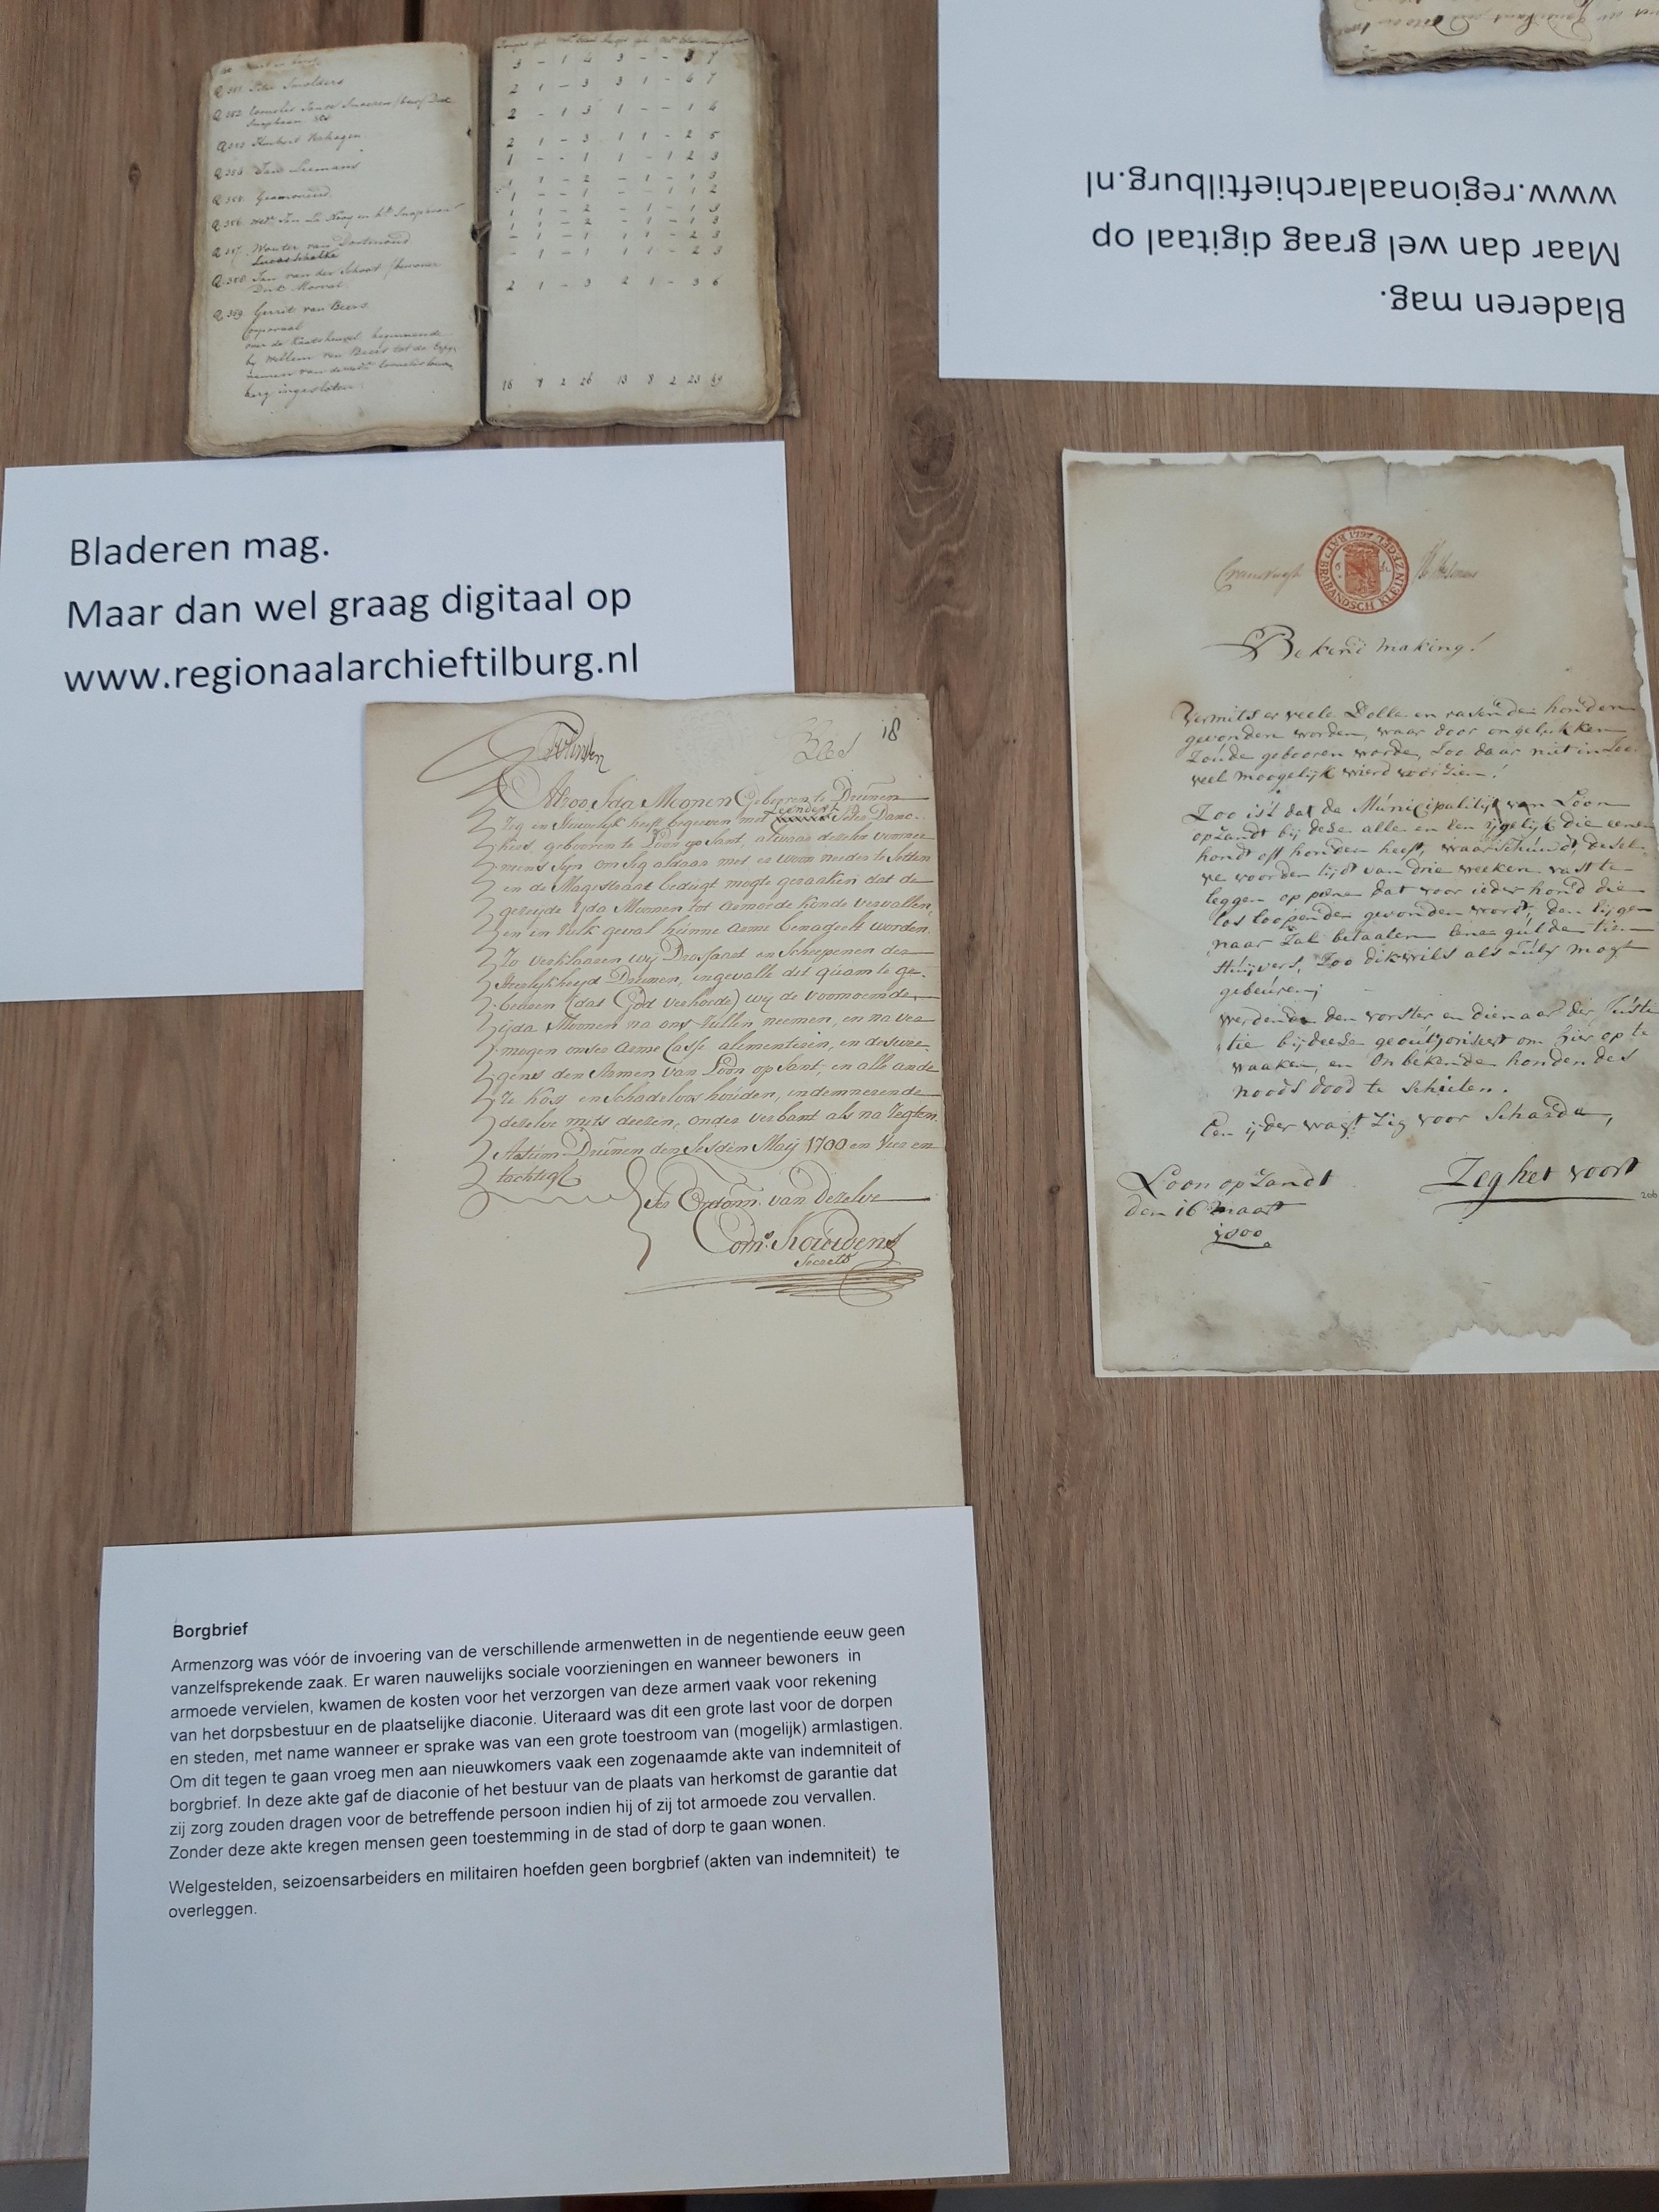 Q 382 Peter Smolders
Q 383 Huibert Verhagen
Q 384 Jan Leemans
Q 385 Geamoveerd
Q 387 Wouter van Dortmond
Q 388 Jan van der Schoot /bewoner
Q 389 Gerrit van Beers
Corporaal
over de Kaatsheuvel beginnende
by Willem van Beers tot de
berg ingesloten
3 - 1 4 3 - - 3 7
2 1 - 3 3 1 - 4 7
2 - 1 3 1 - - 1 4
2 1 - 3 1 1 - 2 5
1 - - 1 1 - 1 2 3
1 1 - 2 - 1 - 1 3
1 - - 1 - - 1 1 2
1 1 - 2 - 1 - 1 3
1 1 - 2 - 1 - 1 3
- 1 - 1 1 1 - 2 3
- 1 - 1 1 1 - 2 3
2 1 - 3 2 1 - 3 6
16 8 2 26 13 8 2 23 49
Bladeren mag.
Maar dan wel graag digitaal op
www.regionaalarchieftilburg.nl
Bladeren mag.
Maar dan wel graag digitaal op
www.regionaalarchieftilburg.nl
18
Alzoo Ida Moonen Gebooren te Drünen
Zig in Huwelyk heeft begeeven met Leendert Peter Danc-
kers gebooren te Loon op Sant, alwaar deselve voornee-
mens Sijn om Sig aldaar met er woon needer te Setten
en de Magistraat beducgt mogte geraaken dat de
geseijde Ida Moonen tot armoede konde vervallen,
en in Sulk geval heünne arme benadeelt worden.
Zo verklaaren wij Drossaard en Scheepenen der
Heerlijkheyd Drünen, ingevalle dit quam te ge-
beuren (dat God verhoede) wij de voornoemde
ijda Moonen na ons Süllen neemen, en na ver-
mogen onser arme Casse alementeren, en deswe-
gens den Armen van Loon op Sant, en alle ande-
re kost en Schadeloos houden, indemneerende
deselve mits deesen, onder verbant als na Regten.
Actüm Drünen den Sesden Maij 1700 en Vier en
tachtigh
Ter Ordonn. van Deselve
Secrets
BAT: BRABANDSCH KLEIN ZEGEL 1797
Bekend making!
Vermits er veele Dolle en rasende honden
gevonden worden, waar door ongelukken
Zoude gebooren worde, Zoo daar niet in Zoo
veel moogelijk wierd voorzien!
Zoo is't dat de Municipaliteijt van Loon
opZandt bij dese alle en een ijgelijk die eenen
hondt off honden heeft, waarschüwdt, desel-
ve voor den tijdt van drie weeken vast te
leggen op pene dat voor ieder hond die
los loopende gevonden wordt, den Eijgen
naar Zal betaalen Eene gulde tien
Stuijvers, Zoo dikwils als Zulx mogt
gebeüren;
werdende den vorster en dienaar der Jüsti
tie bij deese geoutzoriseert om hier op te
waaken, en onbekende honden des
noods dood te Schieten.
Een ijder wagt Zig voor Schaade,
Loon opZandt
den 16 Maart
1800
Zeghet voort
206
Borgbrief
Armenzorg was vóór de invoering van de verschillende armenwetten in de negentiende eeuw geen
vanzelfsprekende zaak. Er waren nauwelijks sociale voorzieningen en wanneer bewoners in
armoede vervielen, kwamen de kosten voor het verzorgen van deze armen vaak voor rekening
van het dorpsbestuur en de plaatselijke diaconie. Uiteraard was dit een grote last voor de dorpen
en steden, met name wanneer er sprake was van een grote toestroom van (mogelijk) armlastigen.
Om dit tegen te gaan vroeg men aan nieuwkomers vaak een zogenaamde akte van indemniteit of
borgbrief. In deze akte gaf de diaconie of het bestuur van de plaats van herkomst de garantie dat
zij zorg zouden dragen voor de betreffende persoon indien hij of zij tot armoede zou vervallen.
Zonder deze akte kregen mensen geen toestemming in de stad of dorp te gaan wonen.
Welgestelden, seizoensarbeiders en militairen hoefden geen borgbrief (akten van indemniteit) te
overleggen.